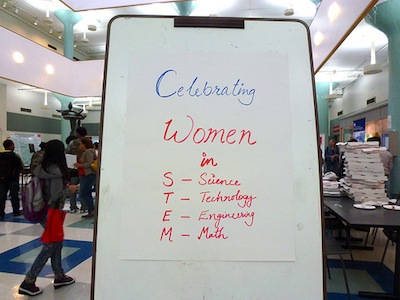 Celebrating
Women
in
S - Science
T - Technology
E - Engineering
M - Math